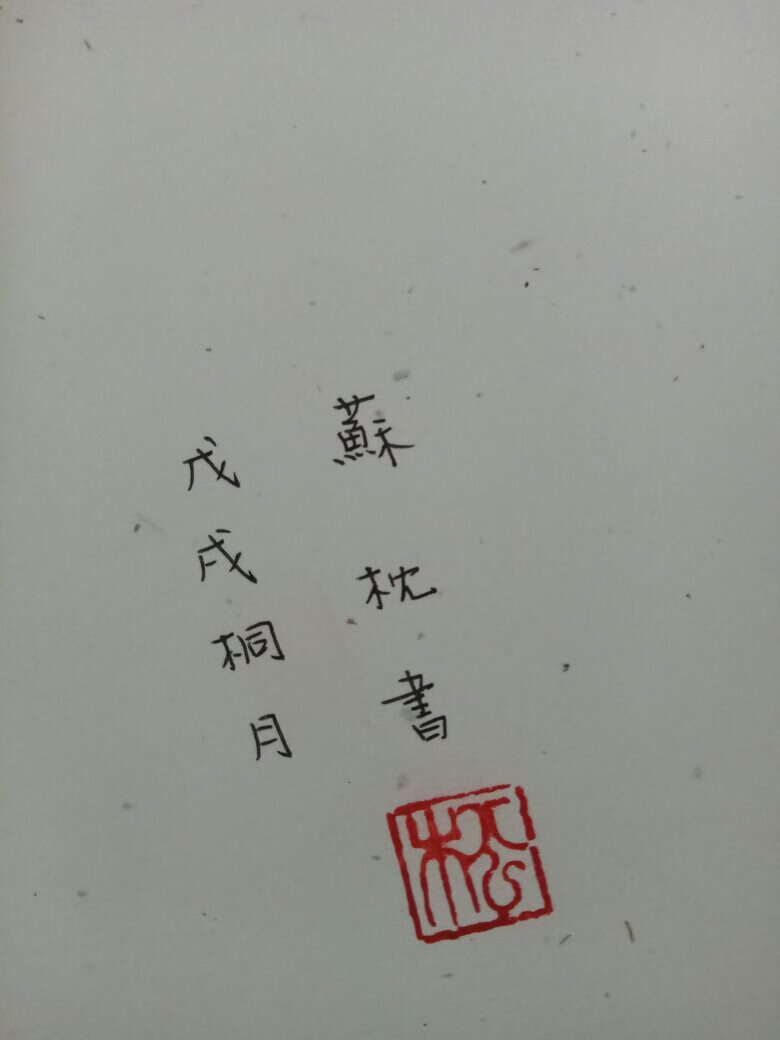 蘇枕書
戊戌桐月